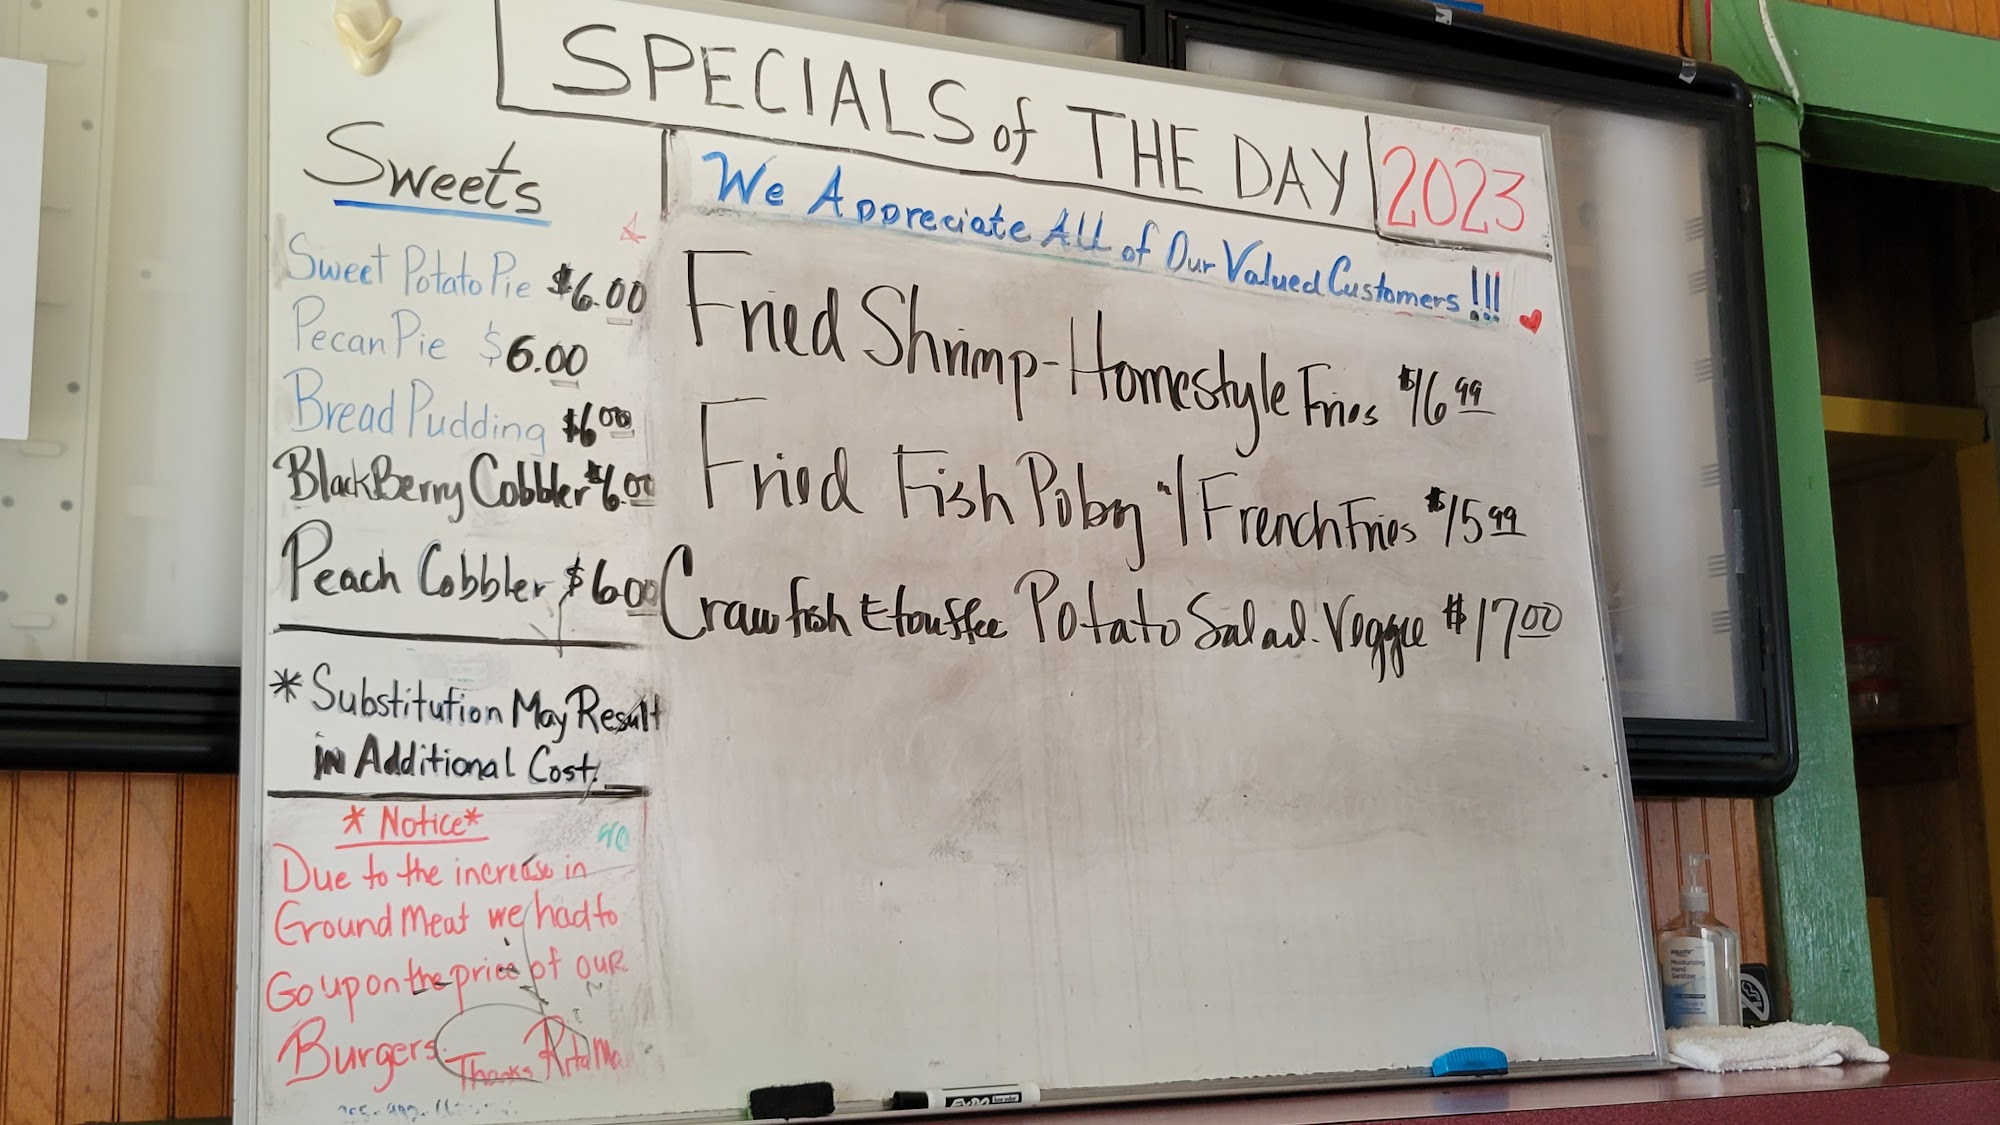 SPECIALS of THE DAY
2023
Sweets
Sweet Potato Pie $6.00
Pecan Pie $6.00
Bread Pudding $6.00
BlackBerry Cobbler $6.00
Peach Cobbler $6.00
* Substitution May Result
in Additional Cost.
* Notice *
Due to the increase in
Ground Meat we had to
Go up on the price of our
Burgers.
Thanks Rita Ma
We Appreciate All of Our Valued Customers!!!
Fried Shrimp-Homestyle Fries $16.99
Fried Fish Poboy w/ French Fries $15.99
Crawfish Etouffee Potato Salad-Veggie $17.00
equate
Moisturizing
Hand
Sanitizer
EXPO